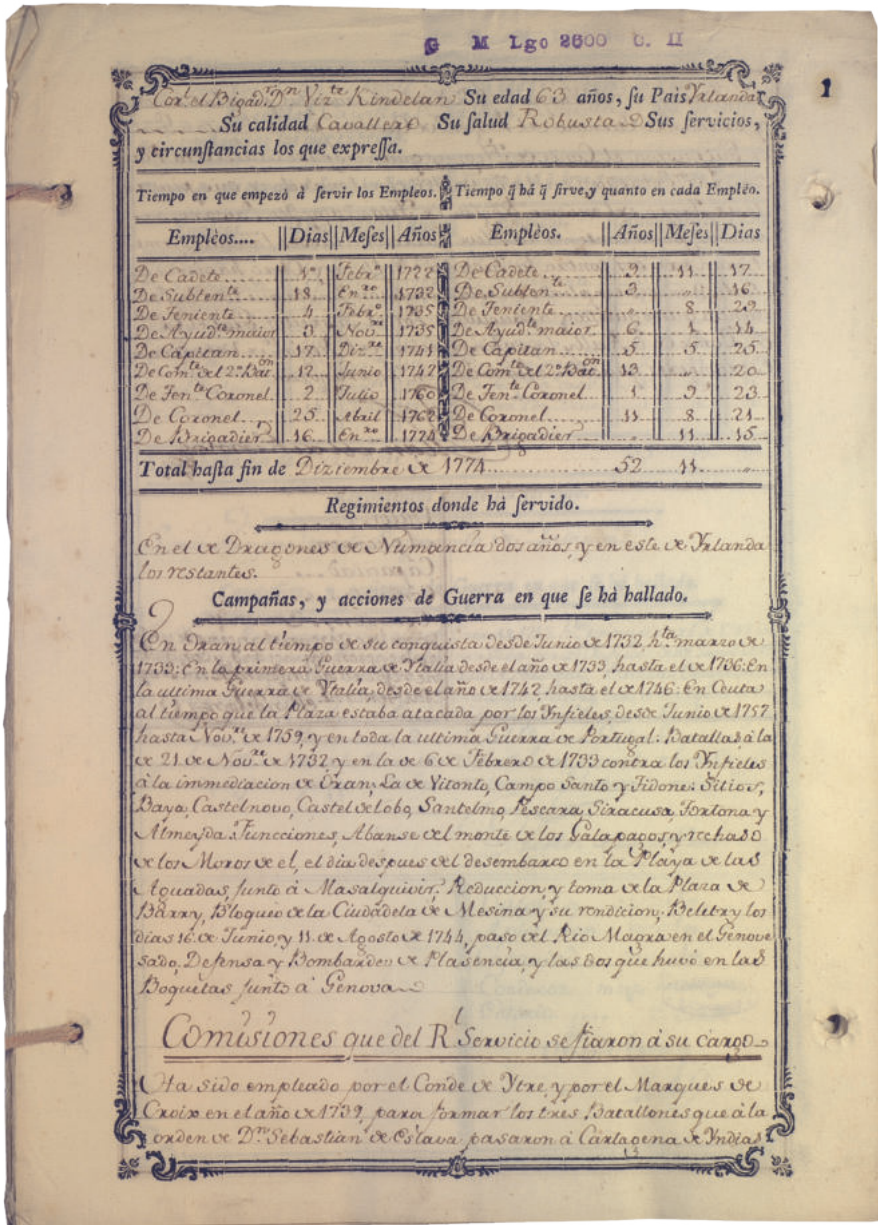 G M Lgo 2600 C. II
1
Corˡ el Brigadʳ Dⁿ Vizᵗᵉ Kindelan Su edad 63 años, ſu Pais Yrlanda
Su calidad Cavallero Su ſalud Robusta Sus ſervicios,
y circunſtancias los que expreſſa.
Tiempo en que empezò à ſervir los Empleos. Tiempo q̃ hà q̃ ſirve, y quanto en cada Emplèo.
Emplèos.... Dias Meſes Años Emplèos. Años Meſes Dias
De Cadete 1º Febrº 1722 De Cadete 9 11 17
De Subtenᵗᵉ 18 Enʳᵒ 1732 De Subtenᵗᵉ 3 " 16
De Teniente 4 Febº 1735 De Teniente " 8 29
De Ayudᵗᵉ maior 3 Novʳᵉ 1735 De Ayudᵗᵉ maior 6 1 14
De Capitan 17 Dizʳᵉ 1741 De Capitan 5 5 25
De Comᵗᵉ del 2º Batᵒⁿ 12 Junio 1747 De Comᵗᵉ del 2º Batᵒⁿ 13 " 20
De Tenᵗᵉ Coronel 2 Julio 1760 De Tenᵗᵉ Coronel 1 9 23
De Coronel 25 Abril 1762 De Coronel 11 8 21
De Brigadier 16 Enʳᵒ 1774 De Brigadier " 11 15
Total haſta fin de Diziembre de 1774 52 11 "
Regimientos donde hà ſervido.
En el de Dragones de Numancia dos años, y en este de Yrlanda
los restantes.
Campañas, y acciones de Guerra en que ſe hà hallado.
En Oran, al tiempo de su conquista desde Junio de 1732, hᵗᵃ marzo de
1733: En la primera Guerra de Ytalia desde el año de 1733, hasta el de 1736: En
la ultima Guerra de Ytalia, desde el año de 1742, hasta el de 1746: En Ceuta
al tiempo que la Plaza estaba atacada por los Ynfieles, desde Junio de 1757
hasta Novʳᵉ de 1759, y en toda la ultima Guerra de Portugal: Batallas à la
de 21 de Novʳᵉ de 1732 y en la de 6 de Febrero de 1733 contra los Ynfieles
à la immediacion de Oran; La de Vitonto, Campo Santo y Tidone: Sitios,
Bayа, Castelnovo, Castel de lobo, Santelmo, Pescara, Siracusa, Tortona y
Almeyda: Funcciones, Abanse del monte de los Galapagos, y rechaso
de los Moros de el, el dia despues del desembarco en la Playa de las
Aguadas, junto à Masalquivir: Reduccion, y toma de la Plaza de
Barry, Bloqueo de la Ciudadela de Mesina y su rendicion, Beletry los
dias 16 de Junio, y 11 de Agosto de 1744, paso del Rio Magra en el Genove
sado, Defensa y Bombardeo de Plasencia, y las dos que huvo en las
Boquetas junto à Genova
Comisiones que del Rˡ Servicio se fiaron à su cargo
Ha sido empleado por el Conde de Ytre, y por el Marques de
Croix en el año de 1739, para formar los tres Batallones que à la
orden de Dⁿ Sebastian de Eslava pasaron à Cartagena de Yndias